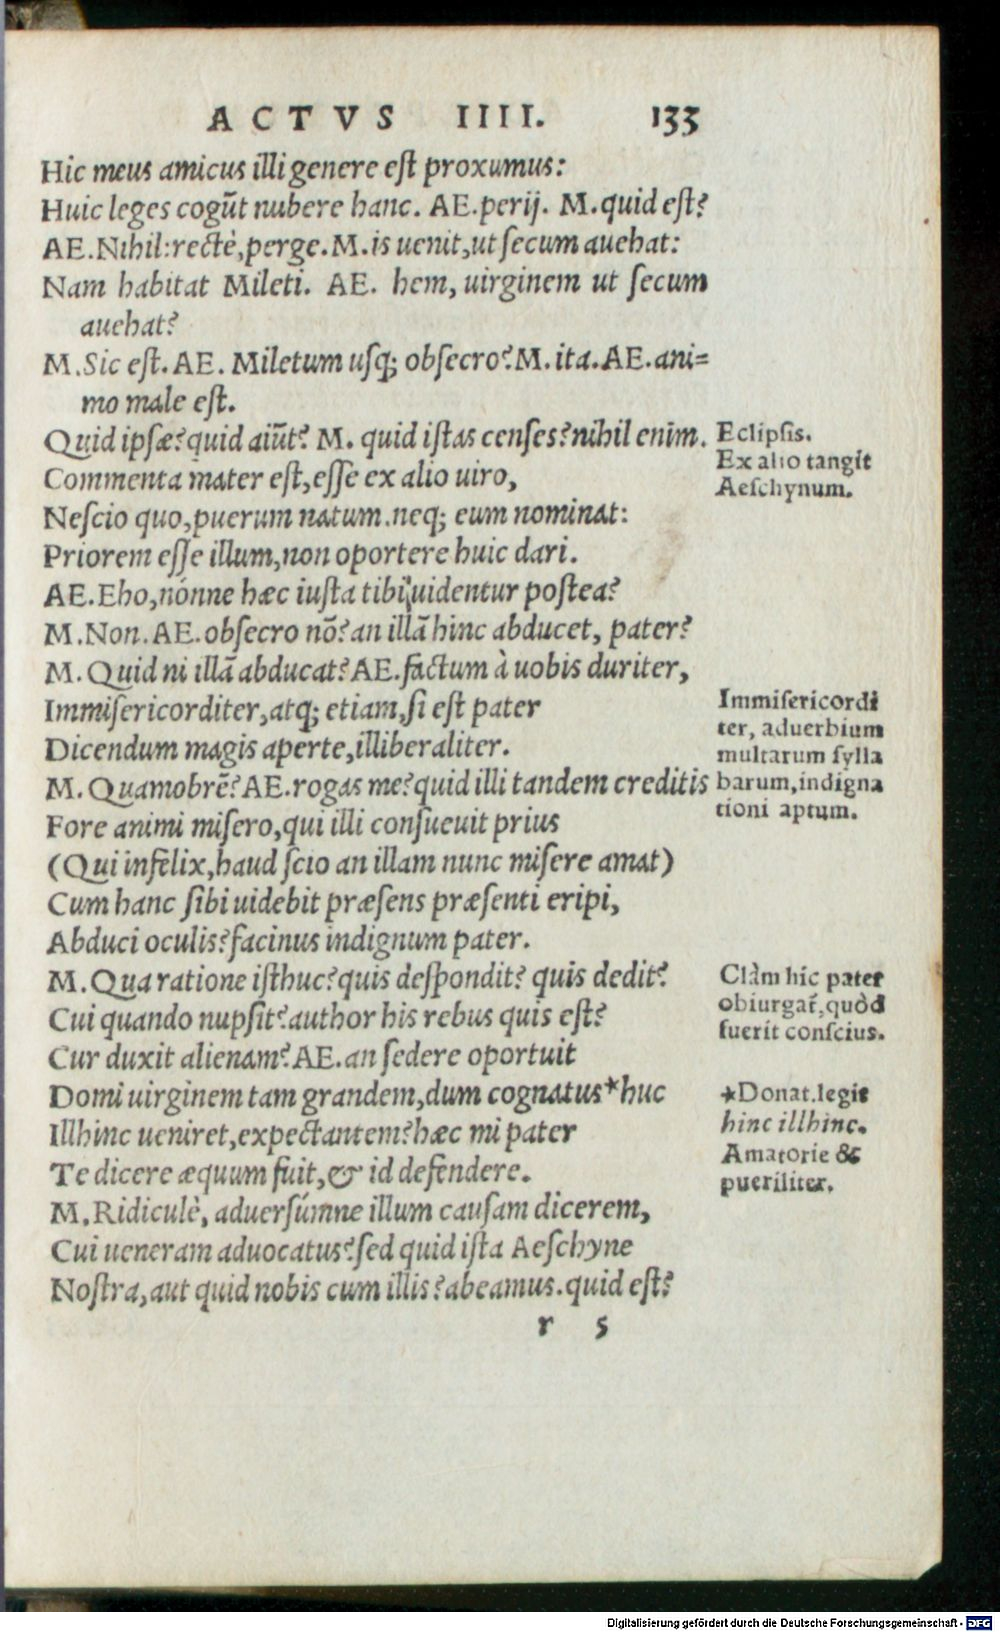 ACTVS IIII. 133
Hic meus amicus illi genere est proxumus:
Huic leges cogūt nubere hanc. AE. perij. M. quid est?
AE. Nihil: rectè, perge. M. is uenit, ut secum auehat:
Nam habitat Mileti. AE. hem, uirginem ut secum
auehat?
M. Sic est. AE. Miletum usq; obsecro? M. ita. AE. ani=
mo male est.
Quid ipsæ? quid aiūt? M. quid istas censes? nihil enim.
Eclipsis.
Commenta mater est, esse ex alio uiro,
Ex alio tangit
Aeschynum.
Nescio quo, puerum natum. neq; eum nominat:
Priorem esse illum, non oportere huic dari.
AE. Eho, nónne hæc iusta tibi uidentur postea?
M. Non. AE. obsecro nō? an illā hinc abducet, pater?
M. Quid ni illā abducat? AE. factum à uobis duriter,
Immisericorditer, atq; etiam, si est pater
Immisericordi
ter, aduerbium
Dicendum magis aperte, illiberaliter.
multarum sylla
M. Quamobrē? AE. rogas me? quid illi tandem creditis
barum, indigna
tioni aptum.
Fore animi misero, qui illi consueuit prius
(Qui infelix, haud scio an illam nunc misere amat)
Cum hanc sibi uidebit præsens præsenti eripi,
Abduci oculis? facinus indignum pater.
M. Qua ratione isthuc? quis despondit? quis dedit?
Clàm hic pater
obiurgat̃, quòd
Cui quando nupsit? author his rebus quis est?
fuerit conscius.
Cur duxit alienam? AE. an sedere oportuit
Domi uirginem tam grandem, dum cognatus * huc
*Donat. legit
hinc illhinc.
Illhinc ueniret, expectantem? hæc mi pater
Amatorie &
Te dicere æquum fuit, & id defendere.
pueriliter.
M. Ridiculè, aduersúmne illum causam dicerem,
Cui ueneram aduocatus? sed quid ista Aeschyne
Nostra, aut quid nobis cum illis? abeamus. quid est?
r 5
Digitalisierung gefördert durch die Deutsche Forschungsgemeinschaft - DFG